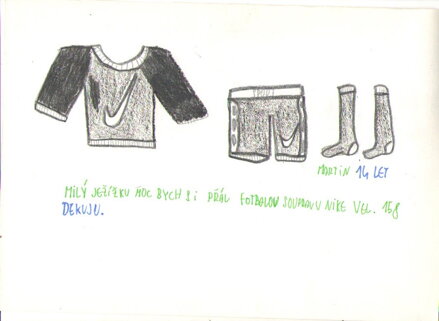 MARTIN 14 LET
MILÝ JEŽÍŠKU MOC BYCH SI PŘÁL FOTBALOV SOUPRAVU NIKE VEL. 158
DĚKUJU.